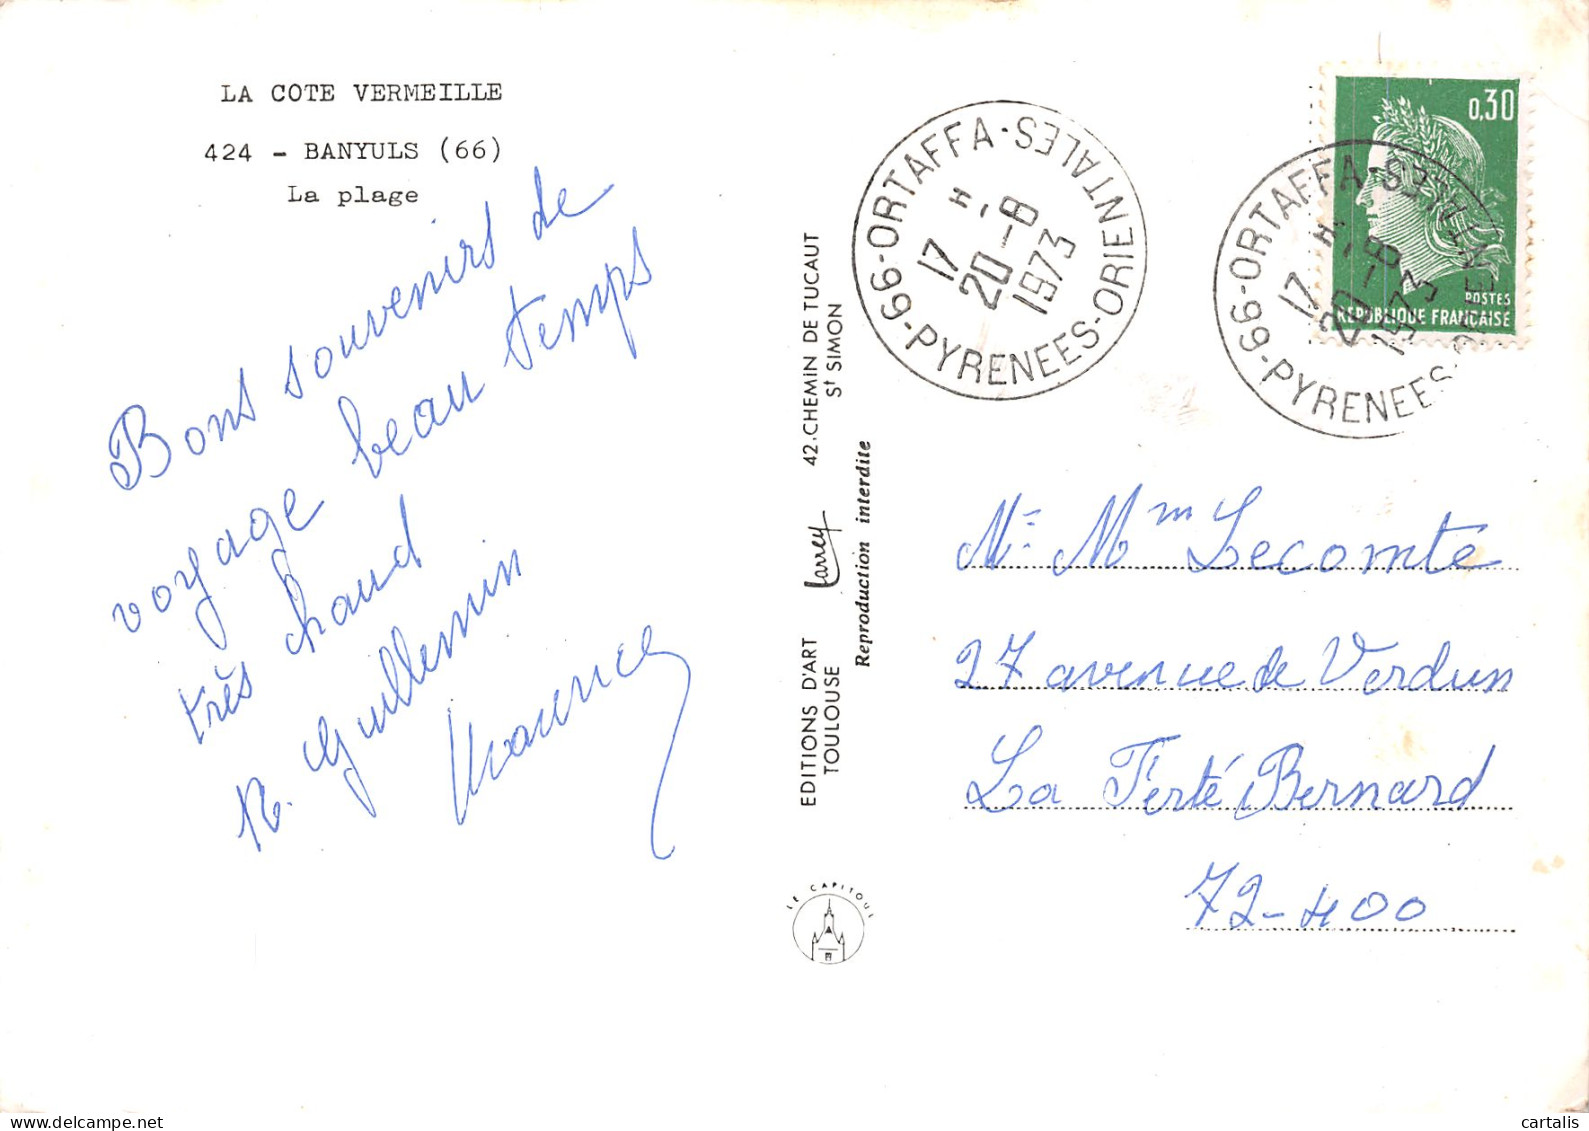 LA COTE VERMEILLE
424 - BANYULS (66)
La plage
Bons souvenirs de
voyage beau temps
très chaud
R. Guillemin
Maurice
EDITIONS D'ART Larrey 42.CHEMIN DE TUCAUT
TOULOUSE St SIMON
Reproduction interdite
LE CAPITOUL
66-ORTAFFA-PYRENEES-ORIENTALES
17 H
20-8
1973
66-ORTAFFA-PYRENEES-ORIENTALES
17 H
20-8
1973
0,30
POSTES
REPUBLIQUE FRANÇAISE
Mr Mme Lecomte
27 avenue de Verdun
La Ferté Bernard
72-400
delcampe.net
cartalis